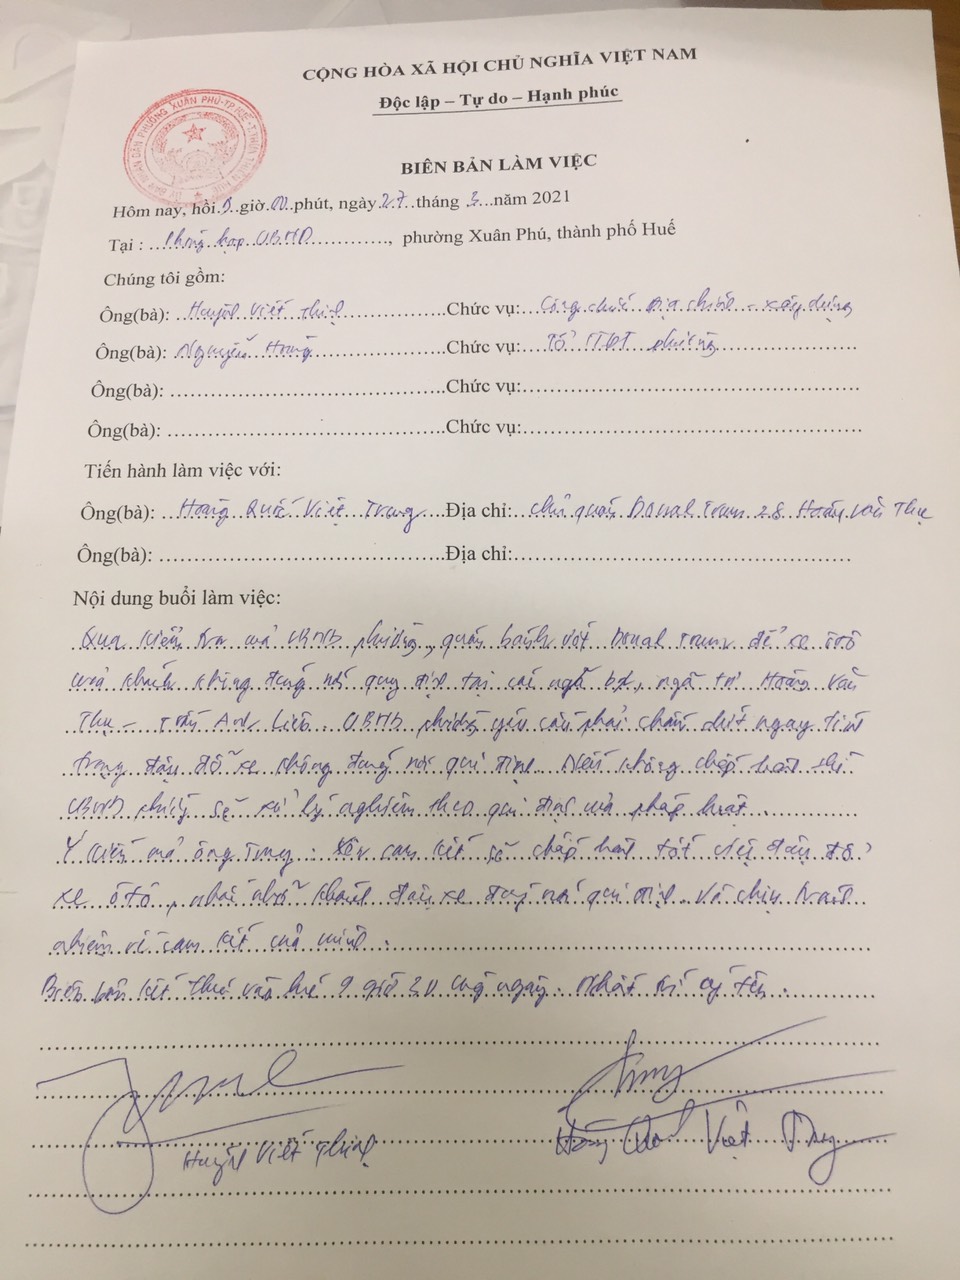 CỘNG HÒA XÃ HỘI CHỦ NGHĨA VIỆT NAM
Độc lập – Tự do – Hạnh phúc
ỦY BAN NHÂN DÂN PHƯỜNG XUÂN PHÚ-TP.HUẾ-T.THỪA THIÊN HUẾ
BIÊN BẢN LÀM VIỆC
Hôm nay, hồi.9..giờ.00..phút, ngày.27..tháng .3...năm 2021
Tại : ..Phòng họp UBND............, phường Xuân Phú, thành phố Huế
Chúng tôi gồm:
Ông(bà): Huỳnh Viết Thịnh................Chức vụ: Công chức Địa chính - xây dựng
Ông(bà): Nguyễn Hoàng....................Chức vụ: Tổ TTĐT phường...................
Ông(bà): .............................................Chức vụ:....................................................
Ông(bà): .............................................Chức vụ:....................................................
Tiến hành làm việc với:
Ông(bà): Hoàng Quốc Việt Trung..Địa chỉ: chủ quán Donal Trum 28 Hoàng Văn Thụ
Ông(bà): .............................................Địa chỉ:....................................................
Nội dung buổi làm việc:
Qua kiểm tra của UBND phường, quán bánh ướt Donal Trum để xe ôtô
của khách không đúng nơi quy định tại cái ngã ba, ngã tư Hoàng Văn
Thụ - Trần Anh Liên. UBND phường yêu cầu phải chấm dứt ngay tình
trạng đậu đỗ xe không đúng nơi qui định. Nếu không chấp hành thì
UBND phường sẽ xử lý nghiêm theo qui định của pháp luật.
Ý kiến của ông Trung: cam kết sẽ chấp hành tốt việc đậu đỗ
xe ôtô, nhắc nhở khách đậu xe đúng nơi qui định. Và chịu trách
nhiệm về cam kết của mình.
Biên bản kết thúc vào lúc 9 giờ 30 cùng ngày. Nhất trí ký tên.
Huỳnh Viết Thịnh
Hoàng Quốc Việt Trung